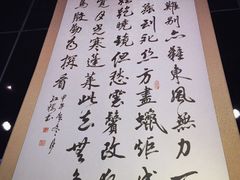 難別亦難東風無力
蠶到死絲方盡蠟炬成
乾曉鏡但愁雲鬢改
覺月光寒蓬萊此去無
鳥殷勤為探看